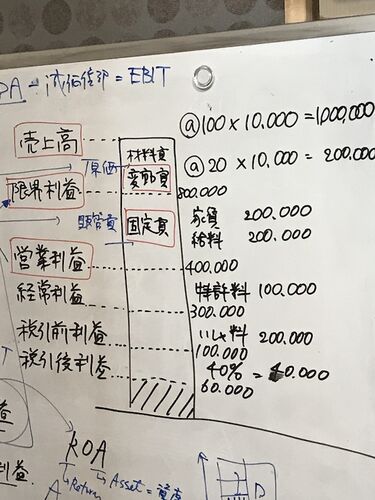 DA - 減価償却 = EBIT
売上高
材料費
@100 × 10.000 = 1,000,000
原価
変動費
@20 × 10.000 = 200.000
限界利益
800.000
販管費
固定費
家賃 200.000
給料 200.000
営業利益
400.000
経常利益
特許料 100.000
300.000
税引前利益
200.000
100.000
税引後利益
40% = 40.000
60.000
ROA
Return
Asset = 資産